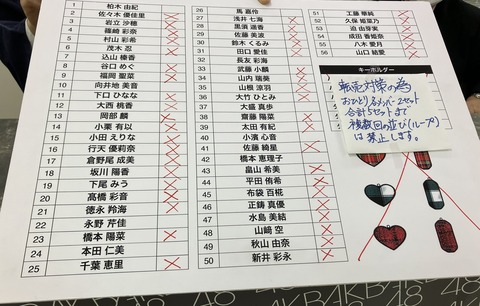 1 柏木 由紀
2 佐々木 優佳里
3 岩立 沙穂
4 篠崎 彩奈
5 村山 彩希
6 茂木 忍
7 込山 榛香
8 谷口 めぐ
9 福岡 聖菜
10 向井地 美音
11 下口 ひなな
12 大西 桃香
13 岡部 麟
14 小栗 有以
15 小田 えりな
16 行天 優莉奈
17 倉野尾 成美
18 坂川 陽香
19 下尾 みう
20 髙橋 彩音
21 徳永 羚海
22 永野 芹佳
23 橋本 陽菜
24 本田 仁美
25 千葉 恵里
26 馬 嘉伶
27 浅井 七海
28 里須
29 佐藤 美波
30 鈴木 くるみ
31 田口 愛佳
32 長友 彩海
33 武藤 小麟
34 山内 瑞葵
35 山根 涼羽
36 大竹 ひとみ
37 大盛 真歩
38 齋藤 陽菜
39 太田 有紀
40 小濱 心音
41 佐藤 綺星
42 橋本 恵理子
43 畠山 希美
44 平田 侑希
45 布袋 百椛
46 正鋳 真優
47 水島 美結
48 山﨑 空
49 秋山 由奈
50 新井 彩永
51 工藤 華純
52 久保 姫菜乃
53 迫 由芽実
54 成田 香姫奈
55 八木 愛月
56 山口 結愛
キーホルダー
転売対策の為
おひとり各メンバー2セット
合計5セットまで
複数回の並び(ループ)
は禁止します。
AKB48